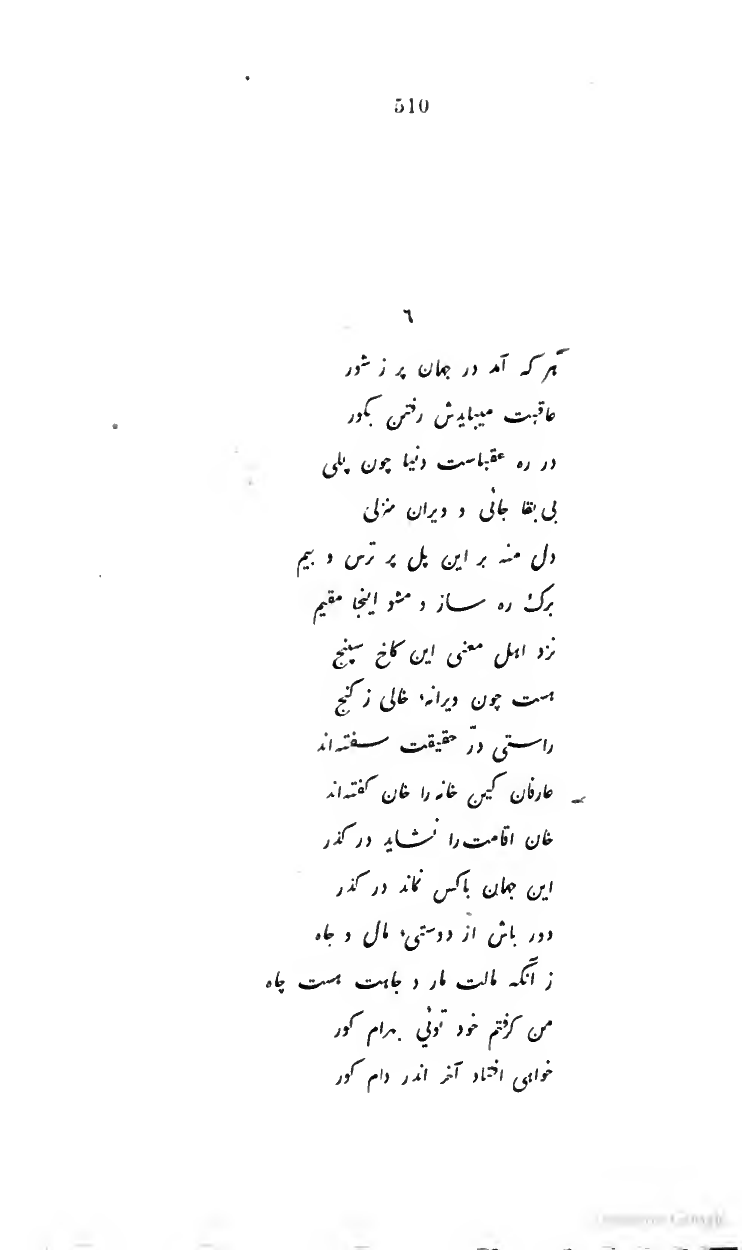 510
٦
هر که آمد در جهان پر ز شور
عاقبت میبایدش رفتن بکور
در ره عقباست دنیا چون پلی
بی بقا جائی و ویران منزلی
دل منه بر این پل پر ترس و بیم
برک ره ساز و مشو اینجا مقیم
نزد اهل معنی این کاخ سپنج
هست چون ویرانهٔ خالی ز کنج
راستی درّ حقیقت سفته‌اند
عارفان کین خانه را خان کفته‌اند
خان اقامت را نشاید در کذر
این جهان باکس نماند در کذر
دور باش از دوستیٔ مال و جاه
ز آنکه مالت مار و جاهت هست چاه
من کرفتم خود توئی بهرام کور
خواهی افتاد آخر اندر دام کور